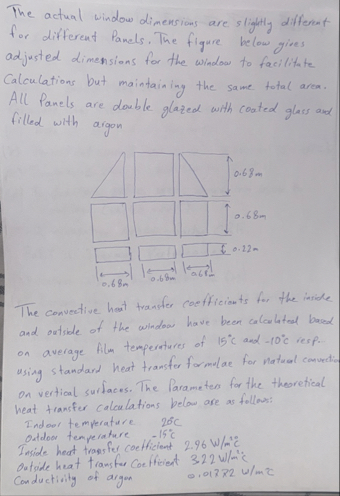 The actual window dimensions are slightly different
for different Panels. The figure below gives
adjusted dimensions for the window to facilitate
Calculations but maintaining the same total area.
All Panels are double glazed with coated glass and
filled with argon
0.68m
0.68m
0.22m
0.68m 0.68m 0.68m
The convective heat transfer coefficients for the inside
and outside of the window have been calculated based
on average film temperatures of 15°C and -10°C resp.
using standard heat transfer formulae for natural convection
on vertical surfaces. The Parameter for the theoretical
heat transfer calculations below are as follows:
Indoor temperature 20°C
Outdoor temperature -15°C
Inside heat transfer coefficient 2.96 W/m²°C
Outside heat transfer Coefficient 3.22 W/m²°C
Conductivity of argon 0.01772 W/m°C